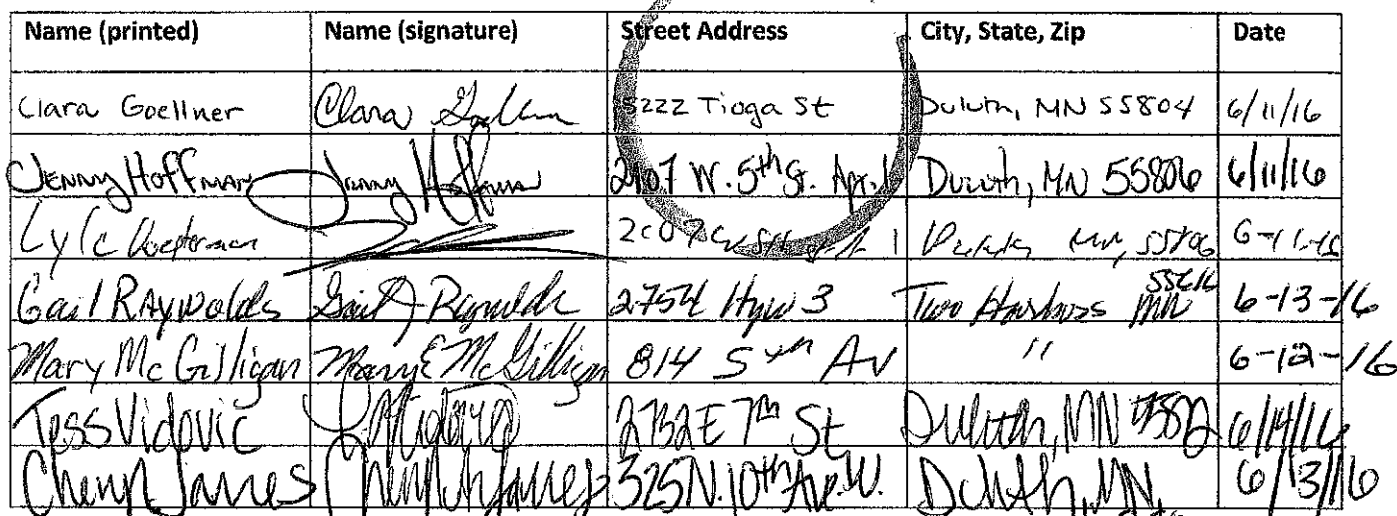 Name (printed) Name (signature) Street Address City, State, Zip Date
Clara Goellner Clara Goellner 5222 Tioga St Duluth, MN 55804 6/11/16
Jenny Hoffman Jenny Hoffman 2107 W. 5th St. Apt. 1 Duluth, MN 55806 6/11/16
Lyle 1 Duluth, MN, 55806 6-11-16
Gail RAYNolds Gail Raynolds 2754 Hyw 3 Two Harbors MN 55616 6-13-16
Mary McGilligan Mary E McGilligan 814 5th Av " 6-12-16
Tess Vidovic 2732 E 7th St Duluth, MN 6/14/16
Cheryl James Cheryl James 325 N. 10th Ave. W. Duluth, MN, 6/13/16